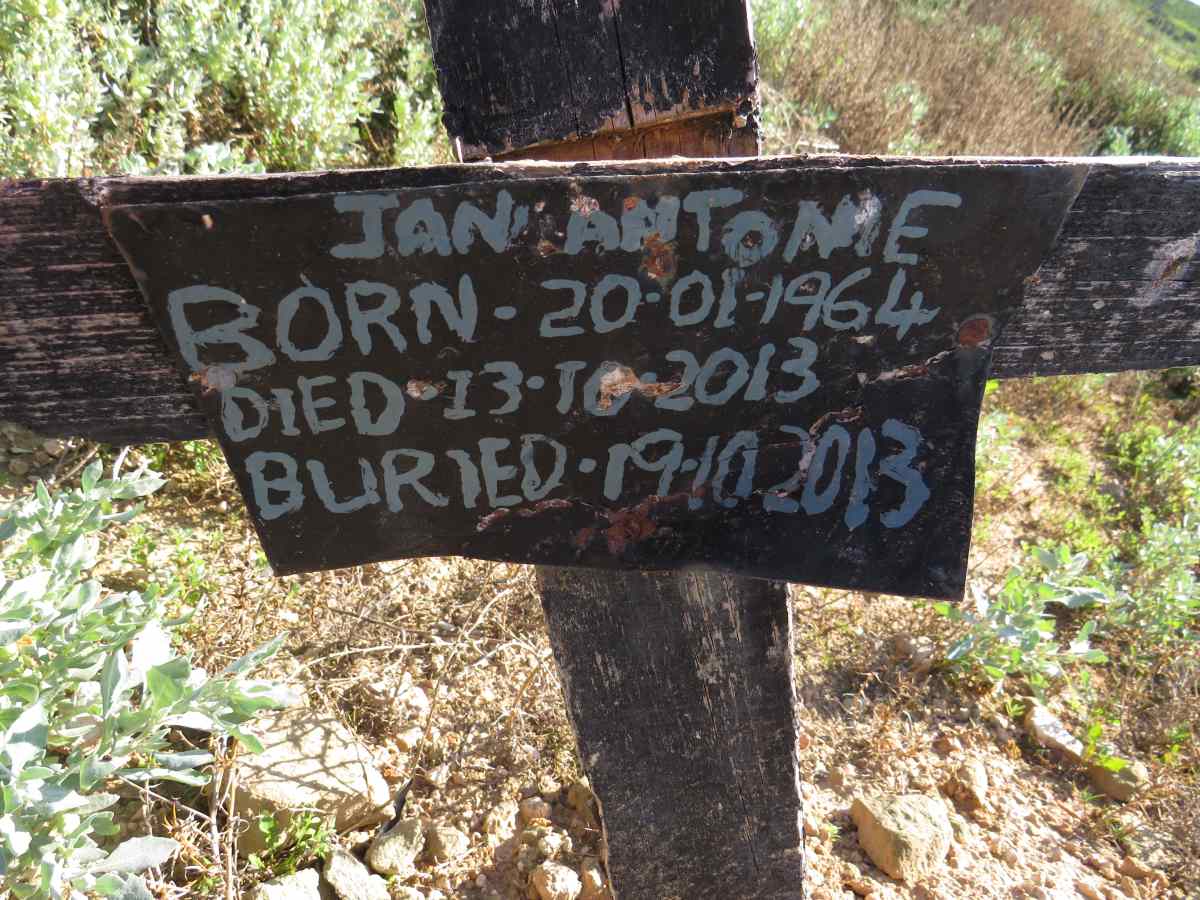 JAN ANTONIE
BORN-20-01-1964
DIED-13-10-2013
BURIED-19-10 2013